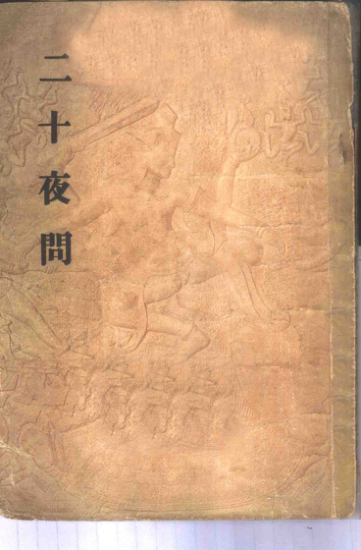 二十夜問